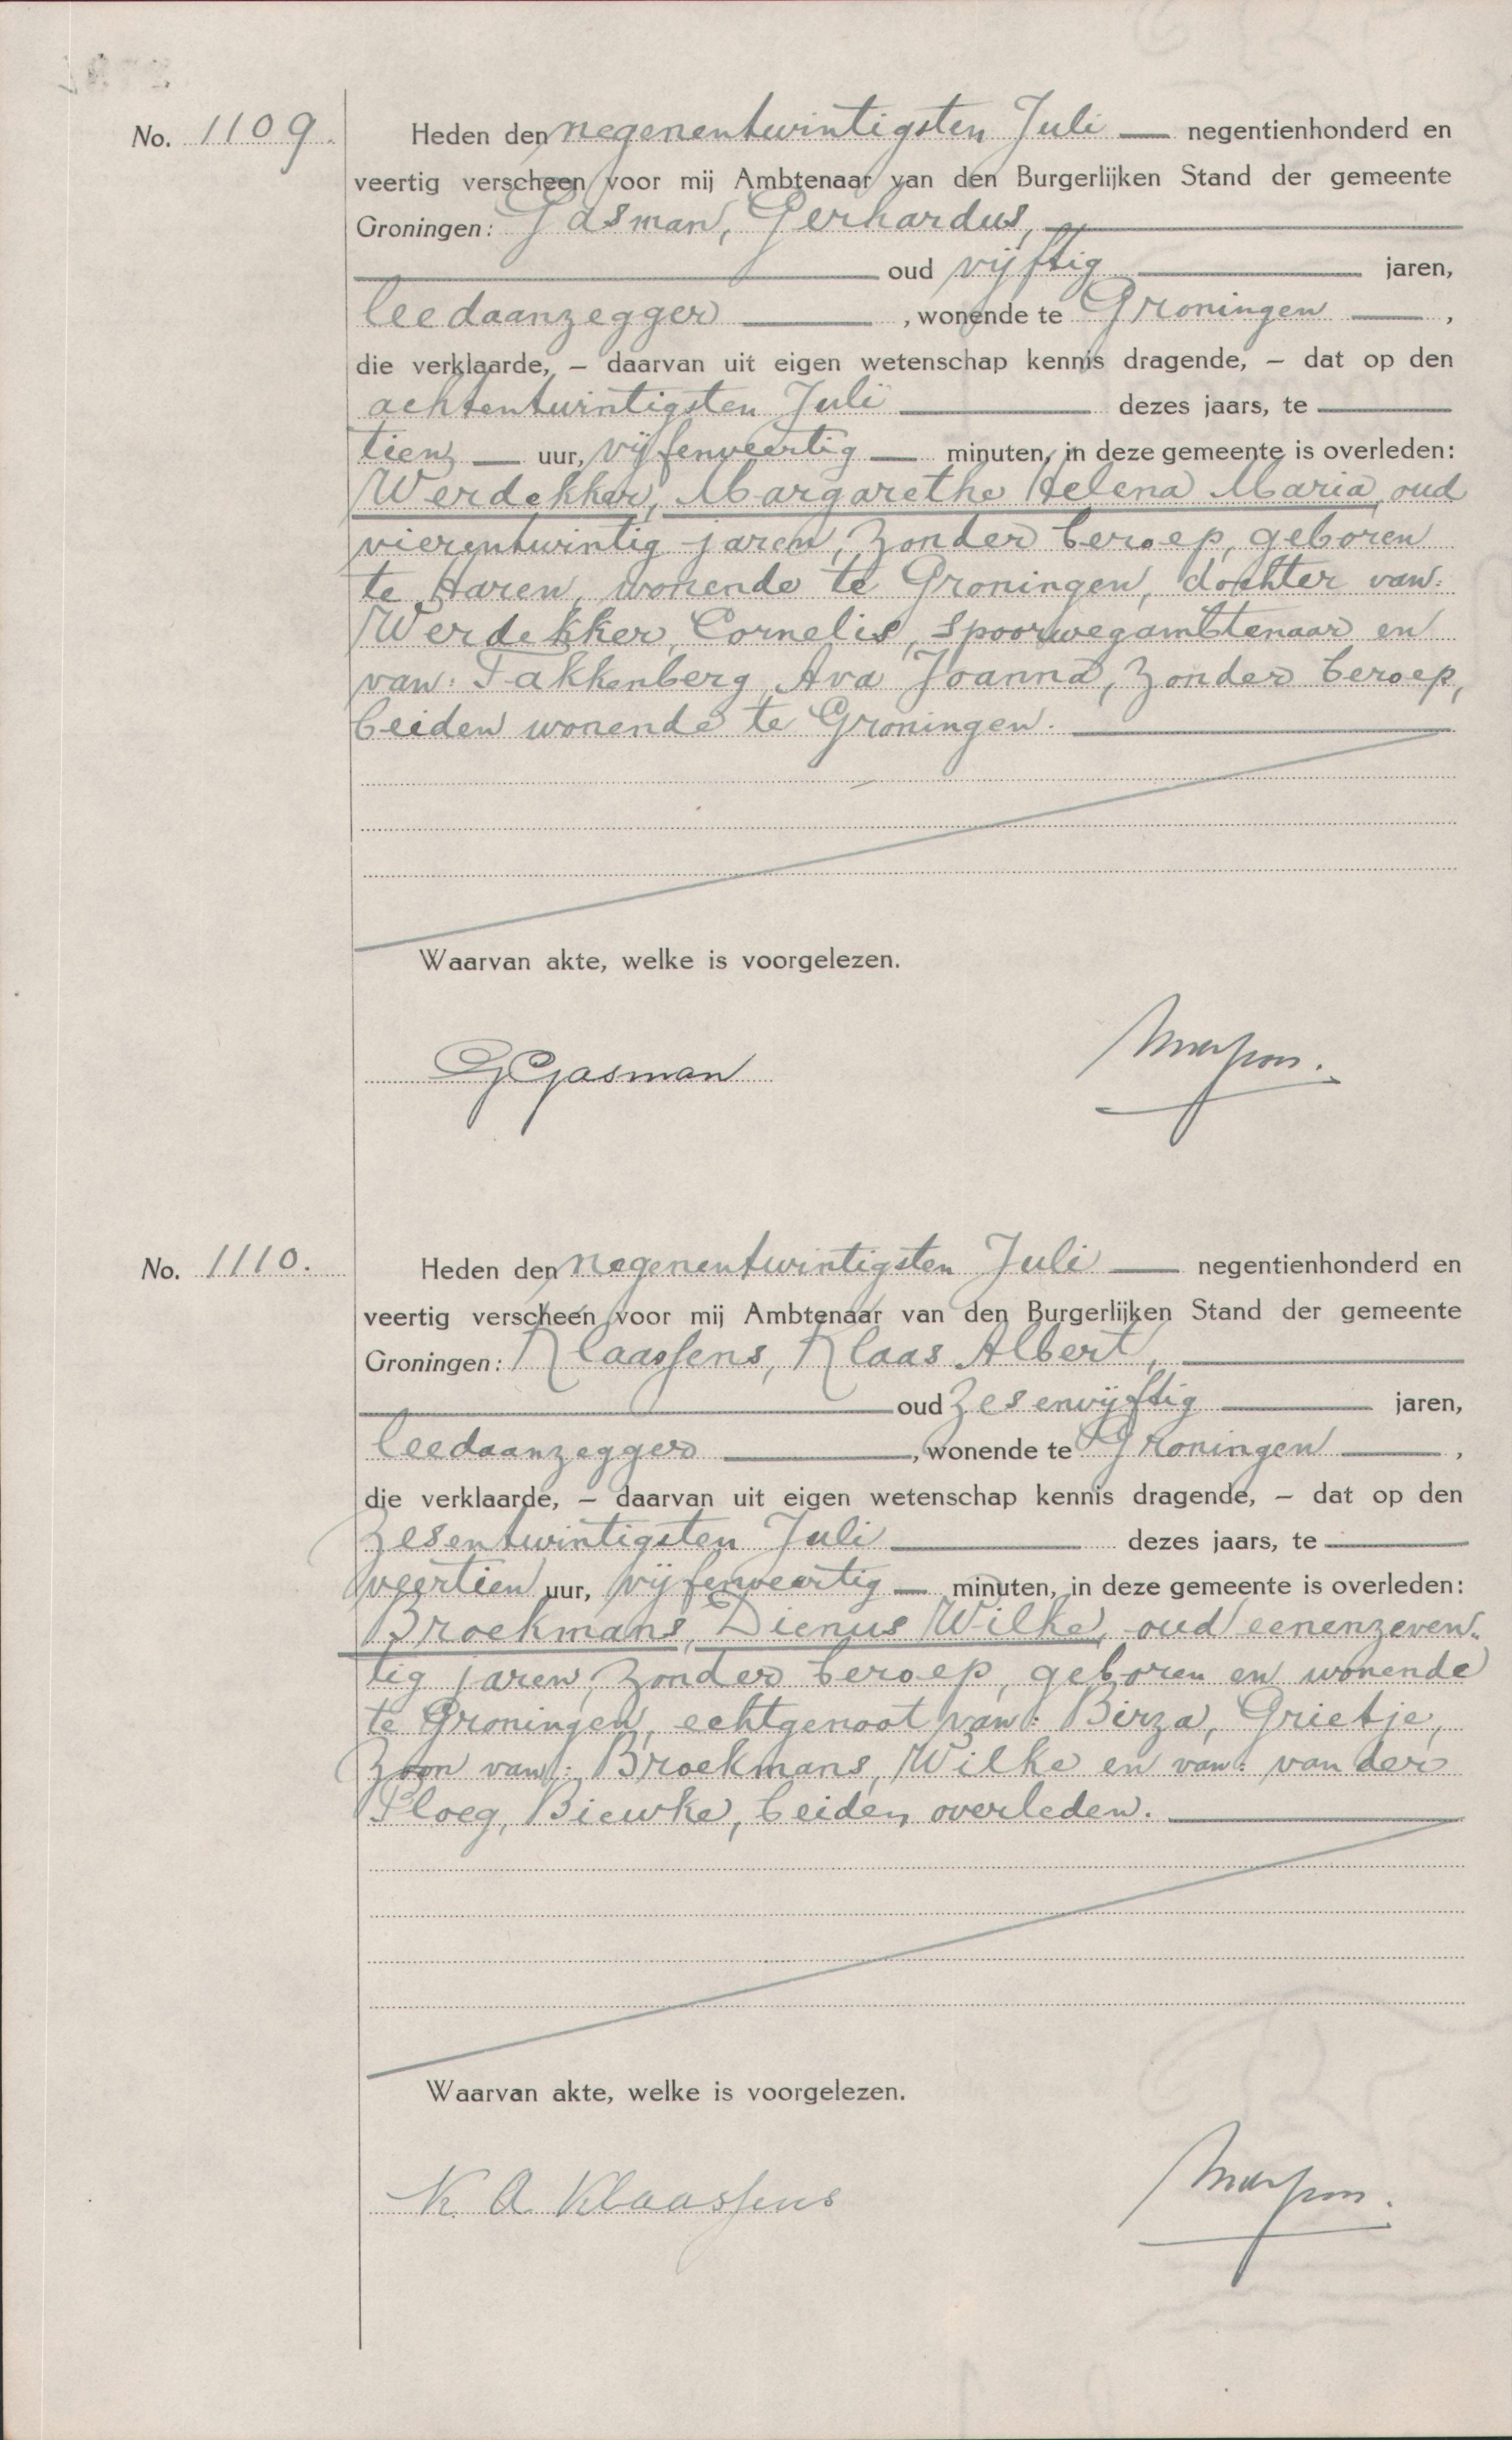 No. 1109. Heden den negenentwintigsten Juli — negentienhonderd en
veertig verscheen voor mij Ambtenaar van den Burgerlijken Stand der gemeente
Groningen: Gasman, Gerhardus,
oud vijftig jaren,
leedaanzegger , wonende te Groningen — ,
die verklaarde, – daarvan uit eigen wetenschap kennis dragende, – dat op den
achtentwintigsten Juli dezes jaars, te
tien — uur, vijfenveertig — minuten, in deze gemeente is overleden:
Werdekker, Margarethe Helena Maria, oud
vierentwintig jaren, zonder beroep, geboren
te Haren, wonende te Groningen, dochter van:
Werdekker, Cornelis, spoorwegambtenaar en
van: Takkenberg, Ava Joanna, zonder beroep,
beiden wonende te Groningen.
Waarvan akte, welke is voorgelezen.
GGasman
No. 1110. Heden den negenentwintigsten Juli — negentienhonderd en
veertig verscheen voor mij Ambtenaar van den Burgerlijken Stand der gemeente
Groningen: Klaassens, Klaas Albert,
oud zesenvijftig jaren,
leedaanzegger , wonende te Groningen — ,
die verklaarde, – daarvan uit eigen wetenschap kennis dragende, – dat op den
zesentwintigsten Juli dezes jaars, te
veertien uur, vijfenveertig — minuten, in deze gemeente is overleden:
Broekmans, Dienus Wilke, oud eenenzeven-
tig jaren, zonder beroep, geboren en wonende
te Groningen, echtgenoot van: Birza, Grietje,
zoon van: Broekmans, Wilke en van: van der
Ploeg, Biewke, beiden overleden.
Waarvan akte, welke is voorgelezen.
K A Klaassens